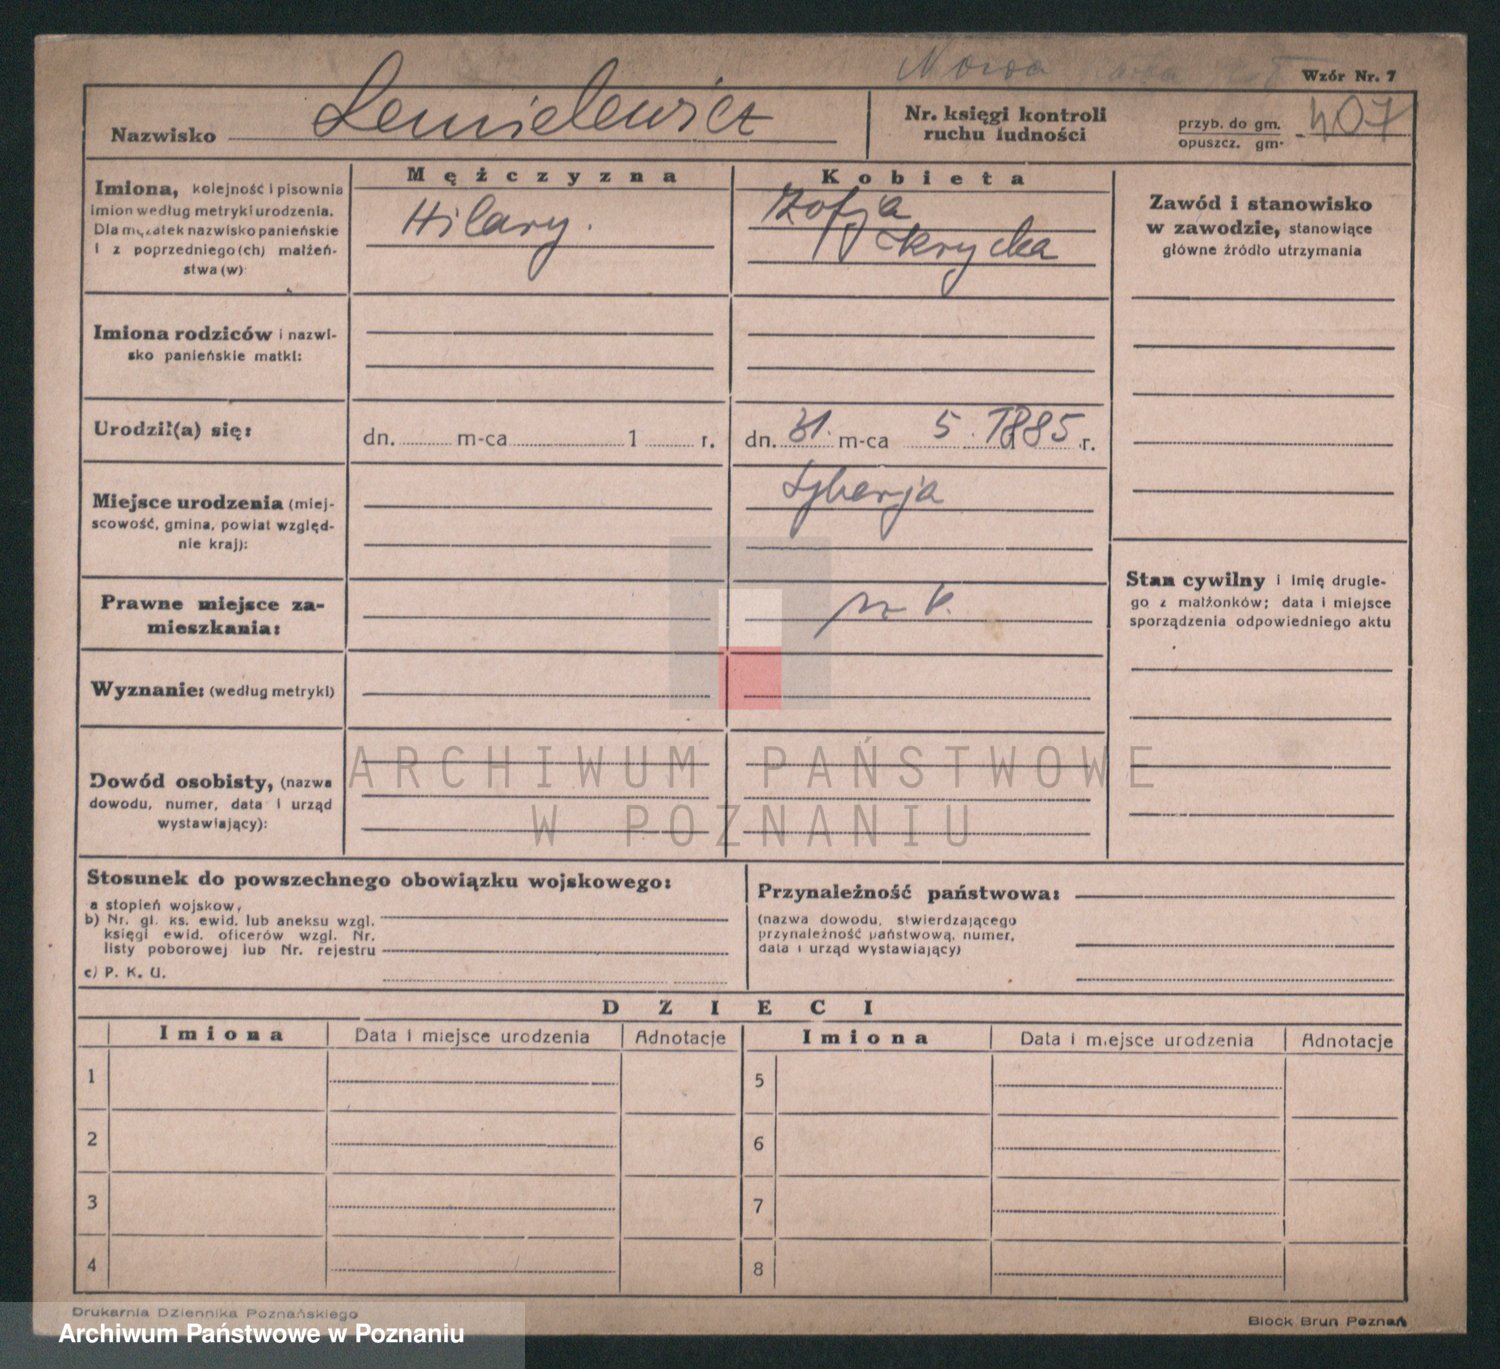 Nowa
Wzór Nr. 7
Nazwisko Lemielewicz
Nr. księgi kontroli
ruchu ludności
przyb. do gm.
opuszcz. gm.
407
Imiona, kolejność i pisownia
imion według metryki urodzenia.
Dla mężatek nazwisko panieńskie
i z poprzedniego(ch) małżeń-
stwa(w)
Mężczyzna
Hilary.
Kobieta
Zofja
Skrycka
Zawód i stanowisko
w zawodzie, stanowiące
główne źródło utrzymania
Imiona rodziców i nazwi-
sko panieńskie matki:
Urodził(a) się:
dn. m-ca 1 r.
dn. 31. m-ca 5. 1885 r.
Miejsce urodzenia (miej-
scowość, gmina, powiat względ-
nie kraj):
Syberja
Prawne miejsce za-
mieszkania:
Stan cywilny i imię drugie-
go z małżonków; data i miejsce
sporządzenia odpowiedniego aktu
Wyznanie: (według metryki)
Dowód osobisty, (nazwa
dowodu, numer, data i urząd
wystawiający):
ARCHIWUM PAŃSTWOWE
W POZNANIU
Stosunek do powszechnego obowiązku wojskowego:
a stopień wojskow,
b) Nr. gl. ks. ewid. lub aneksu wzgl.
księgi ewid. oficerów wzgl. Nr.
listy poborowej lub Nr. rejestru
c) P. K. U.
Przynależność państwowa:
(nazwa dowodu, stwierdzającego
przynależność państwową, numer,
data i urząd wystawiający)
DZIECI
Imiona Data i miejsce urodzenia Adnotacje Imiona Data i miejsce urodzenia Adnotacje
1 5
2 6
3 7
4 8
Drukarnia Dziennika Poznańskiego
Block Brun Poznań
Archiwum Państwowe w Poznaniu